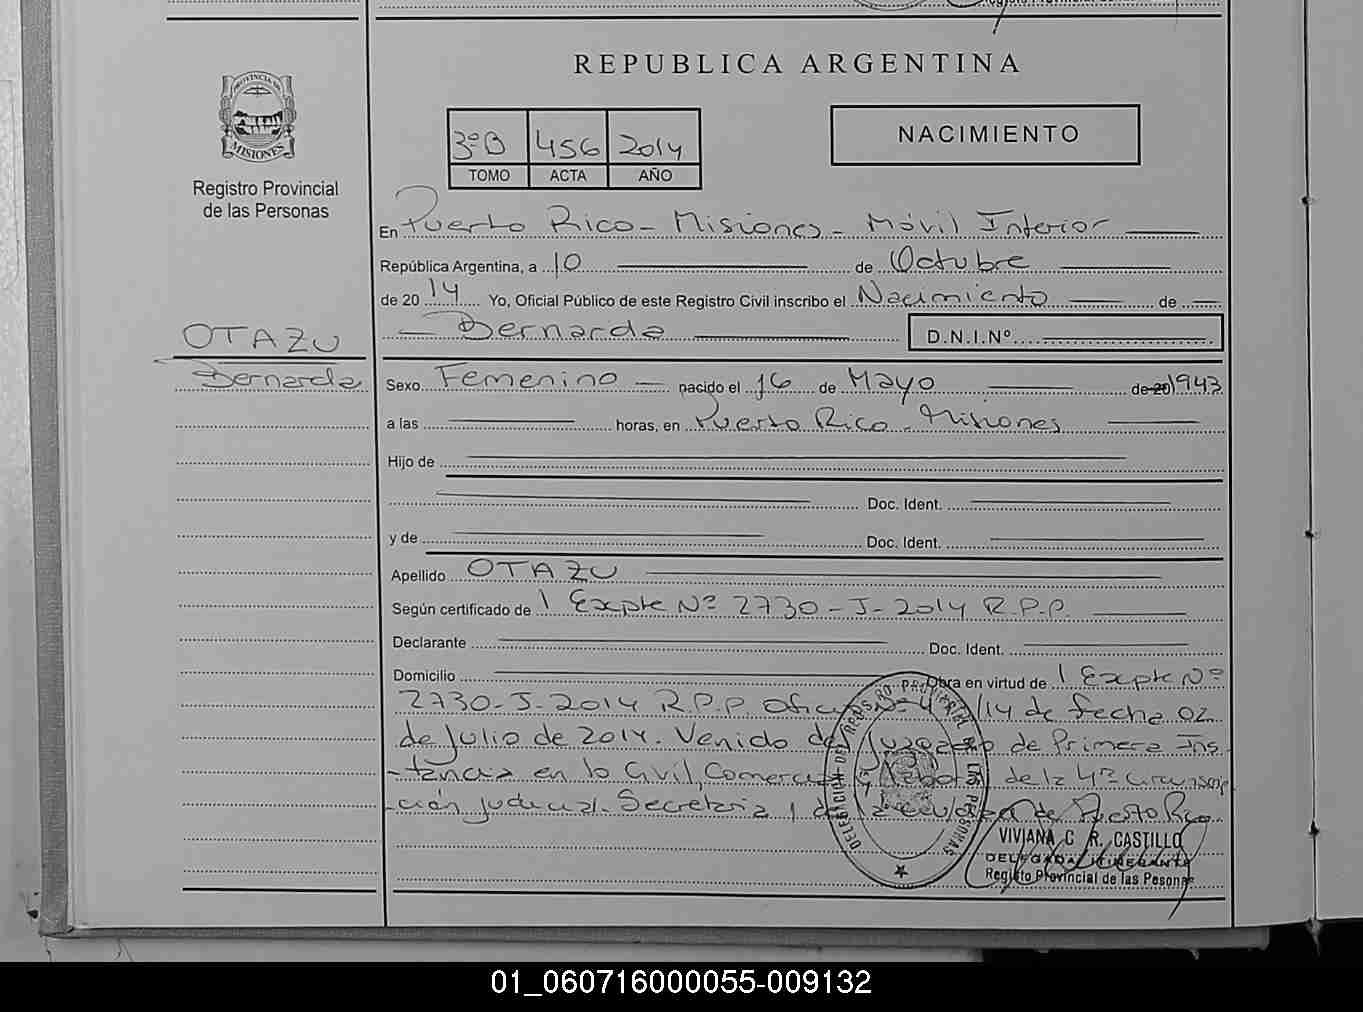 REPUBLICA ARGENTINA
PROVINCIA DE
MISIONES
Registro Provincial
de las Personas
3ºB 456 2014
TOMO ACTA AÑO
NACIMIENTO
En Puerto Rico - Misiones - Móvil Interior
República Argentina, a 10 de Octubre
de 2014 Yo, Oficial Público de este Registro Civil inscribo el Nacimiento de
Bernarda D.N.I.Nº
OTAZU
Bernarda
Sexo Femenino nacido el 16 de Mayo de 20 1943
a las horas, en Puerto Rico - Misiones
Hijo de
Doc. Ident.
y de Doc. Ident.
Apellido OTAZU
Según certificado de 1 Expte Nº 2730-J-2014 R.P.P.
Declarante Doc. Ident.
Domicilio Obra en virtud de 1 Expte Nº
2730-J-2014 R.P.P. Oficio Nº /14 de fecha 02
de Julio de 2014. Venido del Juzgado de Primera Ins
-tancia en lo Civil, Comercial y Laboral de la 4ª Circunscrip
-ción Judicial. Secretaria 1 de la ciudad de Puerto Rico
DELEGACION DEL REGISTRO PROVINCIAL DE LAS PERSONAS
VIVIANA C R. CASTILLO
DELEGADA ITINERANTE
Registro Provincial de las Pesonas
01_060716000055-009132